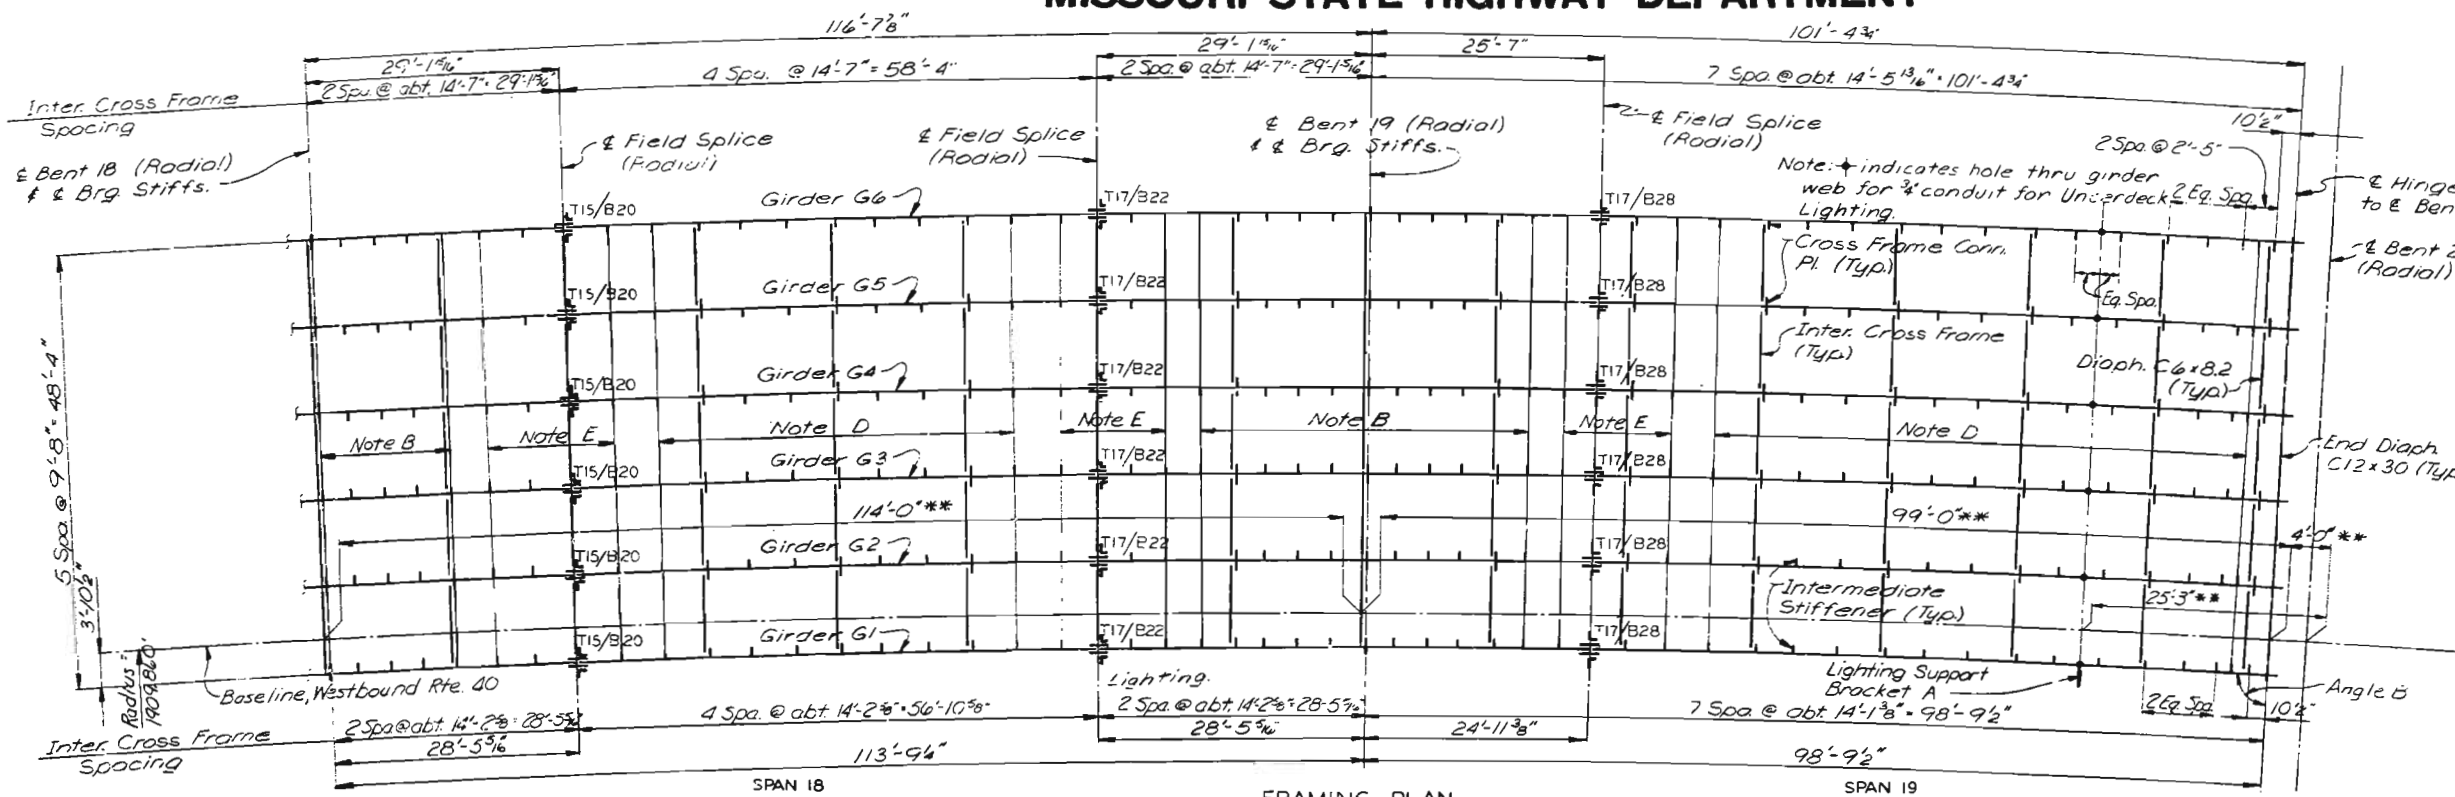 MISSOURI STATE HIGHWAY DEPARTMENT
116'-7⅞"
101'-4¾"
29'-1 15/16"
29'-1 15/16"
25'-7"
2 Spa. @ abt. 14'-7" = 29'-1 15/16"
4 Spa. @ 14'-7" = 58'-4"
2 Spa. @ abt. 14'-7" = 29'-1 15/16"
7 Spa. @ abt. 14'-5 13/16" = 101'-4¾"
Inter. Cross Frame
Spacing
℄ Bent 18 (Radial)
& ℄ Brg. Stiffs.
℄ Field Splice
(Radial)
℄ Field Splice
(Radial)
℄ Bent 19 (Radial)
& ℄ Brg. Stiffs.
℄ Field Splice
(Radial)
10½"
2 Spa. @ 2'-5"
Note: indicates hole thru girder
web for ¾" conduit for Underdeck
Lighting.
2 Eq. Spa.
℄ Hinge
to ℄ Ben
℄ Bent 2
(Radial)
T15/B20
Girder G6
T17/B22
T17/B28
Cross Frame Conn.
Pl. (Typ.)
T15/B20
Girder G5
T17/B22
T17/B28
Eq. Spa.
Inter. Cross Frame
(Typ.)
T15/B20
Girder G4
T17/B22
T17/B28
Diaph. C6x8.2
(Typ.)
5 Spa. @ 9'-8" = 48'-4"
Note B
Note E
Note D
Note E
Note B
Note E
Note D
End Diaph.
C12x30 (Typ
T15/B20
Girder G3
T17/B22
T17/B28
114'-0"**
99'-0"**
4'-0"**
T15/B20
Girder G2
T17/B22
T17/B28
Intermediate
Stiffener (Typ.)
25'-3"**
3'-10½"
T15/B20
Girder G1
T17/B22
T17/B28
Radius =
1909.860'
Baseline, Westbound Rte. 40
Lighting.
Lighting Support
Bracket A
Angle B
2 Eq. Spa.
10½"
Inter. Cross Frame
Spacing
2 Spa @ abt. 14'-2⅝" = 28'-5 5/16"
4 Spa. @ abt. 14'-2⅝" = 56'-10⅝"
2 Spa. @ abt. 14'-2⅝" = 28'-5 5/16"
7 Spa. @ abt. 14'-1⅜" = 98'-9½"
28'-5 5/16"
28'-5 5/16"
24'-11⅜"
113'-9¼"
98'-9½"
SPAN 18
SPAN 19
FRAMING PLAN